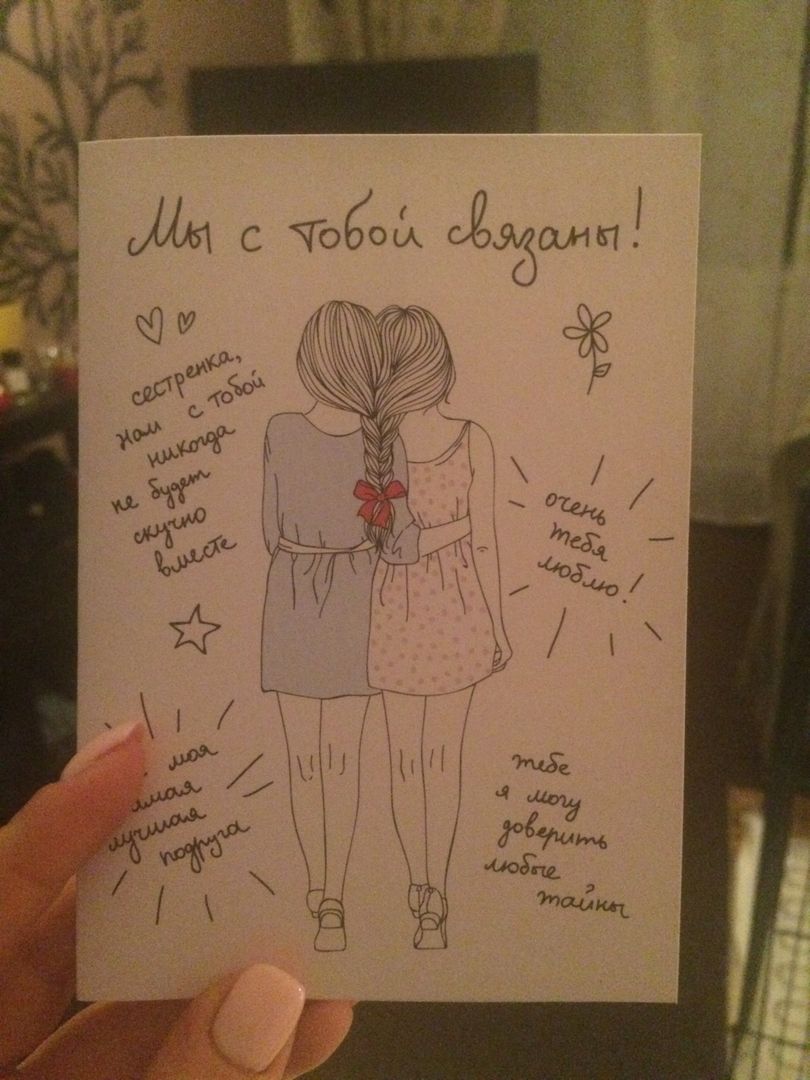 Мы с тобой связаны!
сестренка,
нам с тобой
никогда
не будет
скучно
вместе
очень
тебя
люблю!
моя
лучшая
подруга
тебе
я могу
доверить
любые
тайны